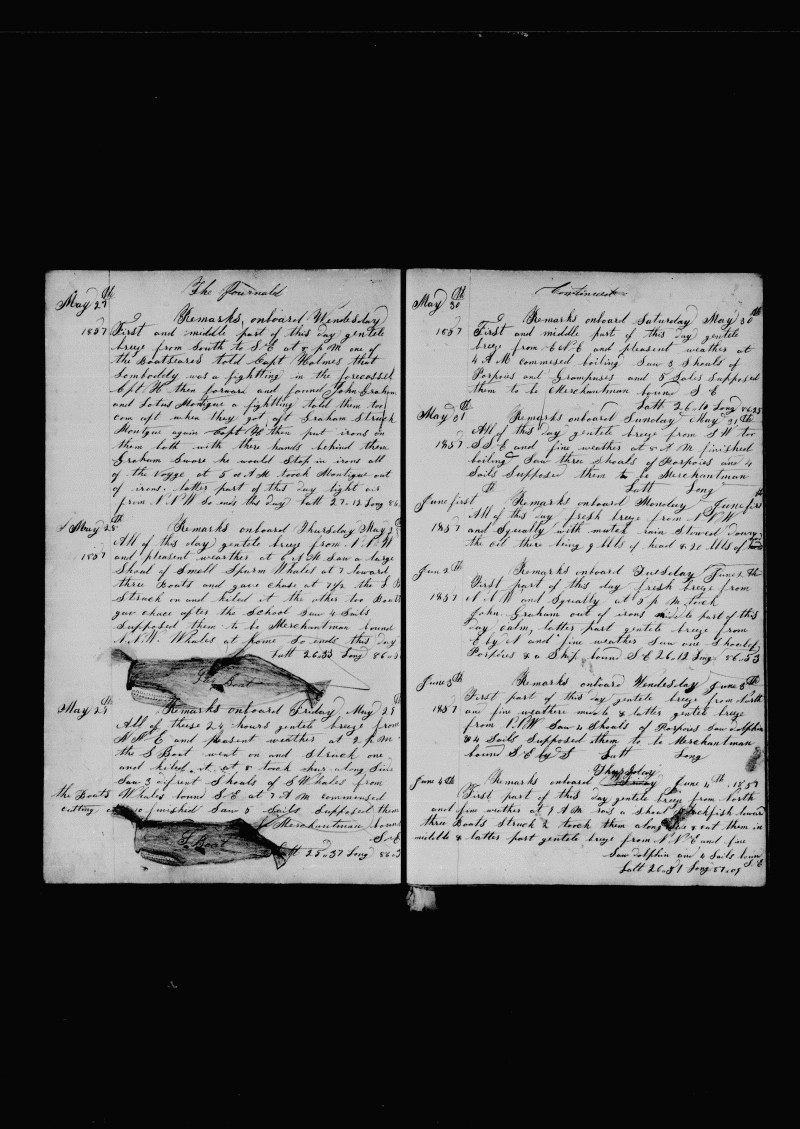 The Journald
May 27th
Remarks onboard Wendesday
1857 First and middle part of this day gentele
breze from South to S E at 8 p m one of
the Boatsteares told Capt Holmes that
Sombodoby was a fightting in the forecassel
Capt H then forward and found John Graham
and Lotus Montigue a fightting told them too
com aft when they got aft Graham Struck
Montgue again Capt H then put irons on
them both with there hands behind them
Graham Swore he would Stop in irons all
of the Voyge at 5 A M took Montigue out
of irons. latter part of this day light air
from N N W So ends this day Latt 27-12 Long 86
May 28th
Remarks onboard Thursday May 28
1857 All of this day gentele breze from N N W
and pleasent wearther at 6 A M Saw a large
Shoal of Small Spurm Whales at 7 loward
three Boats and gave chase at 7 1/2 the S B
Struck on and kiled it the other too Boats
gav chace after the School Saw 4 Sails
Supposed them to be Merchantman bound
N N W Whales at So ends this day
Latt 26.33 Long 86.0
S Boat
May 29th
Remarks onboard Friday May 29
All of these 24 hours gentele breze from
and pleasent weather at 2 p m
the S Boat went on and Struck one
and kiled it. at 8 took hur along Side
Saw 3 difrent Shoals of S Whales from
the Boats Whales bound S E at 7 A M commenced
cutting finished Saw 5 Sails Supposed them
Merchantman bound
S E
Latt 25.37 Long 86.3
S Boat
Continued
May 30th
Remarks onboard Saturday May 30th
1857 First and middle part of this day gentele
breze from E N E and pleasent weather at
4 A M commesed boiling Saw 3 Shoals of
Porpies and Grompuses and 5 Sales Supposed
them to be Merchantman bound S E
Latt 26.10 Long 86.25
May 31th
Remarks onboard Sunday May 31th
All of this day gentele breze from S W too
1857 S S E and fine weather at 8 A M finished
boiling Saw three Shoals of Porpoies and 4
Sails Supposed them to be Merchantman
Latt Long
June first
Remarks onboard Monday June first
All of this day fresh breze from N N W
1857 and Squally with mutch rain Stowed down
the oil there being 9 bbls of head & 20 bbls of
Jun 2th
Remarks onboard Tuesday June 2th
First part of this day fresh breze from
1857 N N W and Squally at 3 p m took
John Graham out of irons midle part of this
day calm, latter part gentele breze from
E by N and fine weather Saw one Shoal of
Porpies & a Ship bound S E 26.12 Long 86.53
June 3th
Remarks onboard Wendesday June 3th
First part of this day gentele breze from North
1857 and fine weathere midle & latter gentele breze
from N W Saw 4 Shoals of Porpies Saw dolphin
& 4 Sails Supposed them to be Merchantman
bound S E by S Latt Long
June 4th
Remarks onboard Thursday June 4th 1857
First part of this day gentele breze from North
and fine wether at 7 A M saw a Shoal Blackfish loward
three Boats Struck 2 toock them along Side & cut them in
middele & latter part gentele breze from N N E and fine
Saw dolphin and 4 Sails boun
S E
Latt 26.31 Long 87.09